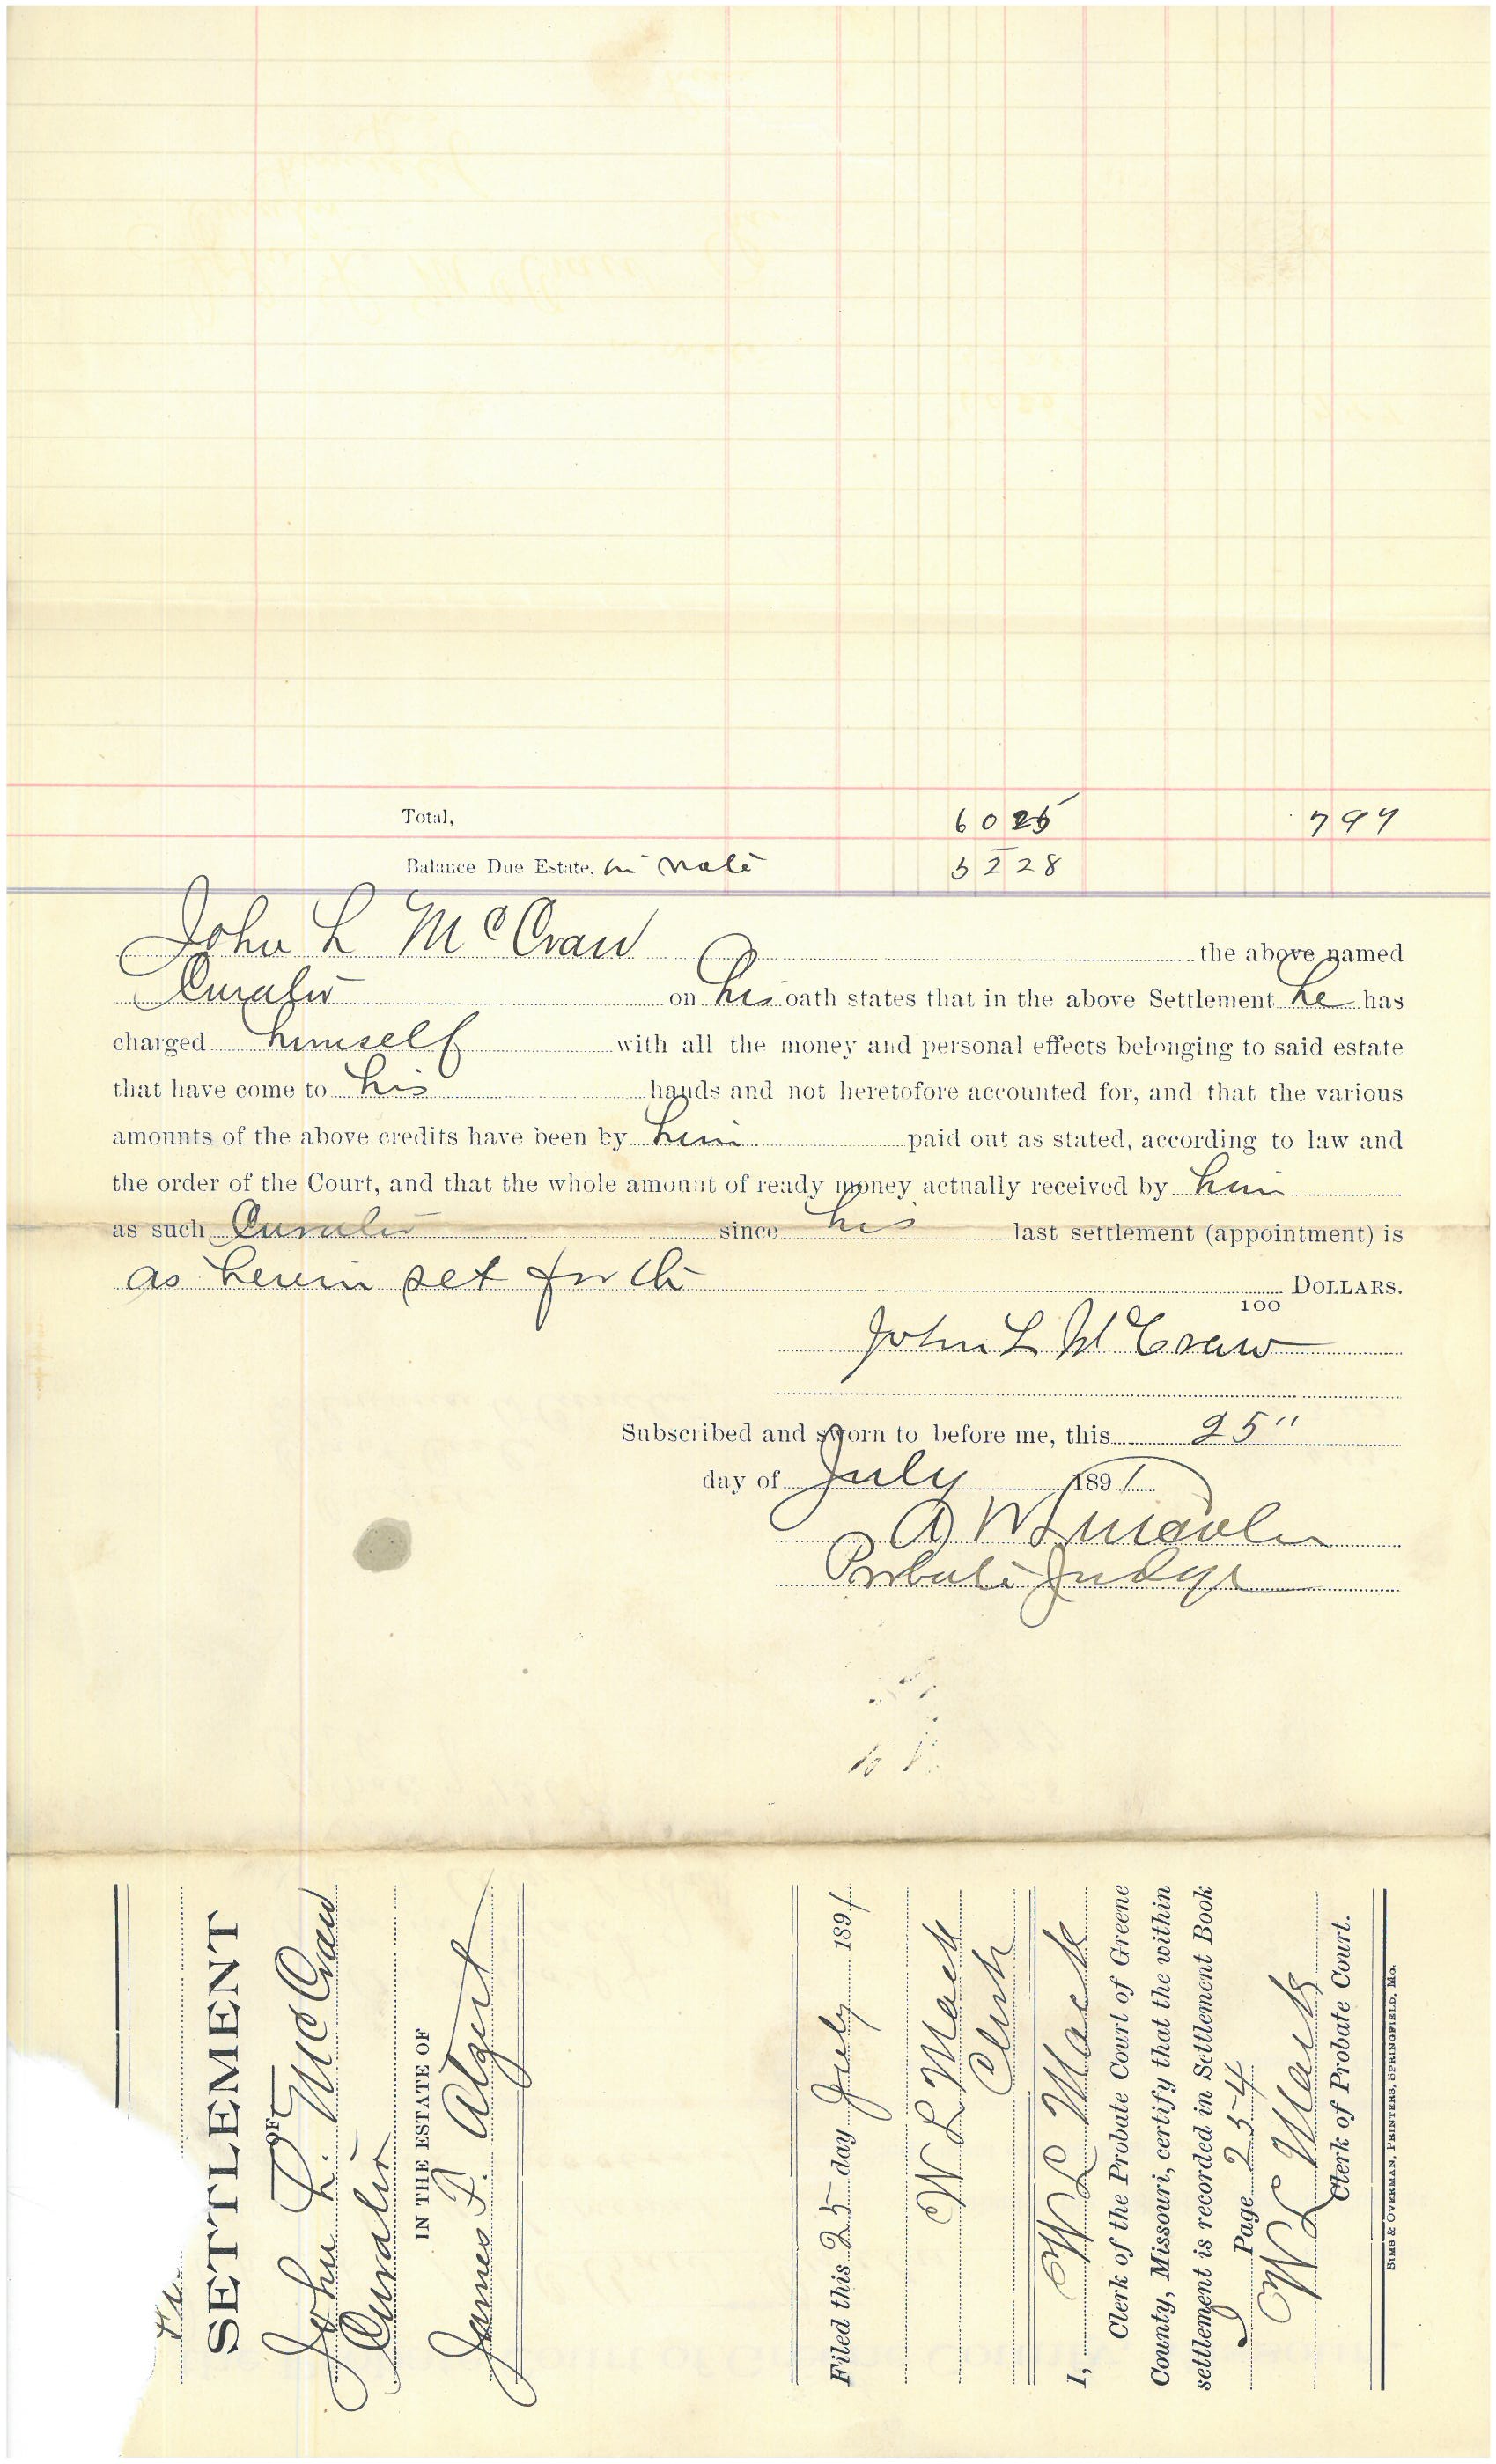 Total, 6025 797
Balance Due Estate, in note 5228
John L McCraw the above named
Curator on his oath states that in the above Settlement he has
charged himself with all the money and personal effects belonging to said estate
that have come to his hands and not heretofore accounted for, and that the various
amounts of the above credits have been by him paid out as stated, according to law and
the order of the Court, and that the whole amount of ready money actually received by him
as such Curator since his last settlement (appointment) is
as herein set forth DOLLARS.
100
John L McCraw
Subscribed and sworn to before me, this 25"
day of July 1891
Probate Judge
SETTLEMENT
OF
John L. McCraw
Curator
IN THE ESTATE OF
James F. Algert
Filed this 25 day July 1891
W L Mack
Clerk
I, W L Mack
Clerk of the Probate Court of Greene
County, Missouri, certify that the within
settlement is recorded in Settlement Book
Page 254
W L Mack
Clerk of Probate Court.
SIMS & OVERMAN, PRINTERS, SPRINGFIELD, MO.